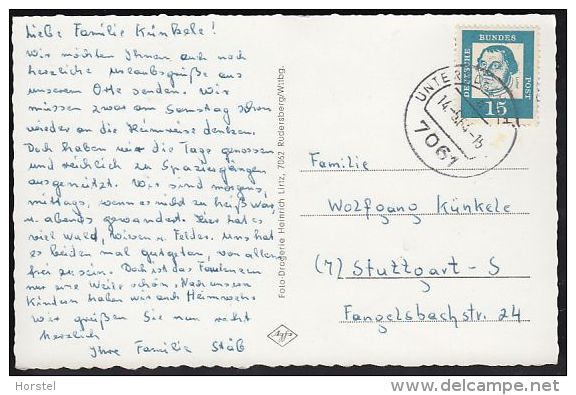 Liebe Familie Künkele!
Wir möchten Ihnen auch noch
herzliche Urlaubsgrüße aus
unserem Orte senden. Wir
müssen zwar am Samstag schon
wieder an die Heimreise denken.
Doch haben wir die Tage genossen
und reichlich zu Spaziergängen
ausgenützt. Wir sind morgens,
mittags, wenn es nicht zu heiß war,
u. abends gewandert. Hier hat es
viel Wald, Wiesen u. Felder. Uns hat
es beiden mal gutgetan, von allem
frei zu sein. Doch ist das Faulenzen
nur eine Weile schön. Nach unsern
Kindern haben wir auch Heimweh.
Wir grüßen Sie nun recht
herzlich
Ihre Familie Stäb
Foto-Drogerie Heinrich Lirtz, 7062 Rudersberg/Wttbg.
DEUTSCHE BUNDES POST
15
7061
Familie
Wolfgang Künkele
(7) Stuttgart-S
Fangelsbachstr. 24
Horstel
delcampe.net